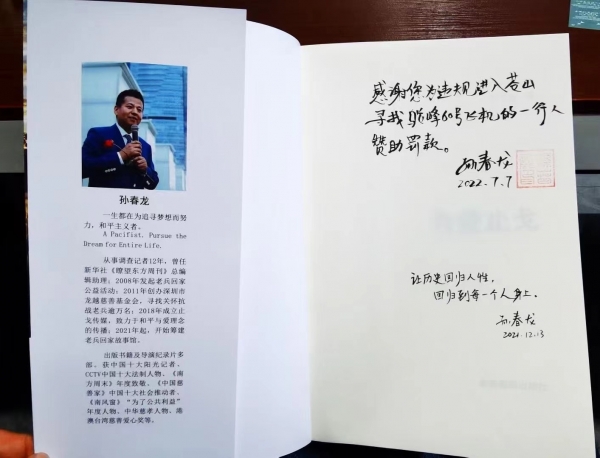 孙春龙
一生都在为追寻梦想而努
力，和平主义者。
A Pacifist, Pursue the
Dream for Entire Life.
从事调查记者12年，曾任
新华社《瞭望东方周刊》总编
辑助理；2008年发起老兵回家
公益活动；2011年创办深圳市
龙越慈善基金会，寻找关怀抗
战老兵逾万名；2018年成立止
戈传媒，致力于和平与爱理念
的传播；2021年起，开始筹建
老兵回家故事馆。
出版书籍及导演纪录片多
部，获中国十大阳光记者、
CCTV中国十大法制人物、《南
方周末》年度致敬、《中国慈
善家》中国十大社会推动者、
《南风窗》“为了公共利益”
年度人物、中华慈孝人物、港
澳台湾慈善爱心奖等。
感谢您为违规进入苍山
寻找驼峰60号飞机的一行人
赞助罚款。
孙春龙
2022.7.7
让历史回归人性，
回归到每一个人身上。
孙春龙
2021.12.13